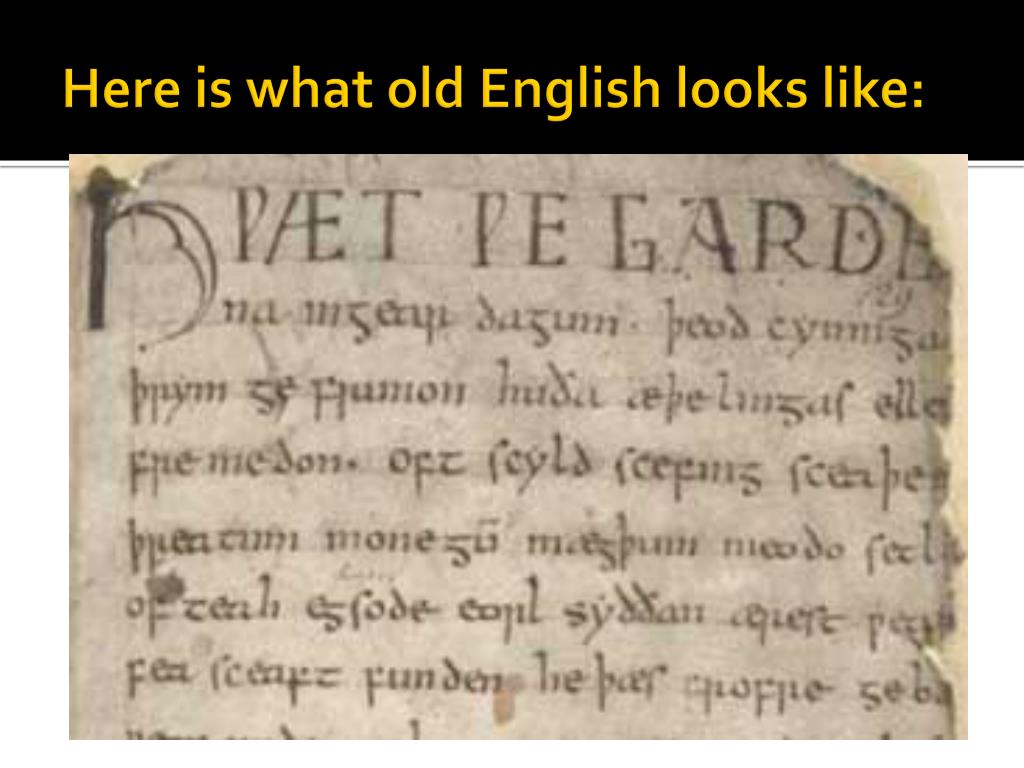 Here is what old English looks like:
HǷÆT ǷE GARDE
129
na ingear dagum. þeod cyninga
þrym ge frunon huða æþelingaſ elle
fremedon. oft ſcyld ſcefing ſceaþe
þreatum monegū mægþum meodo ſetla
of teah egſode eorl syððan æreſt ƿear
fea ſceaft funden he þæſ frofre geba